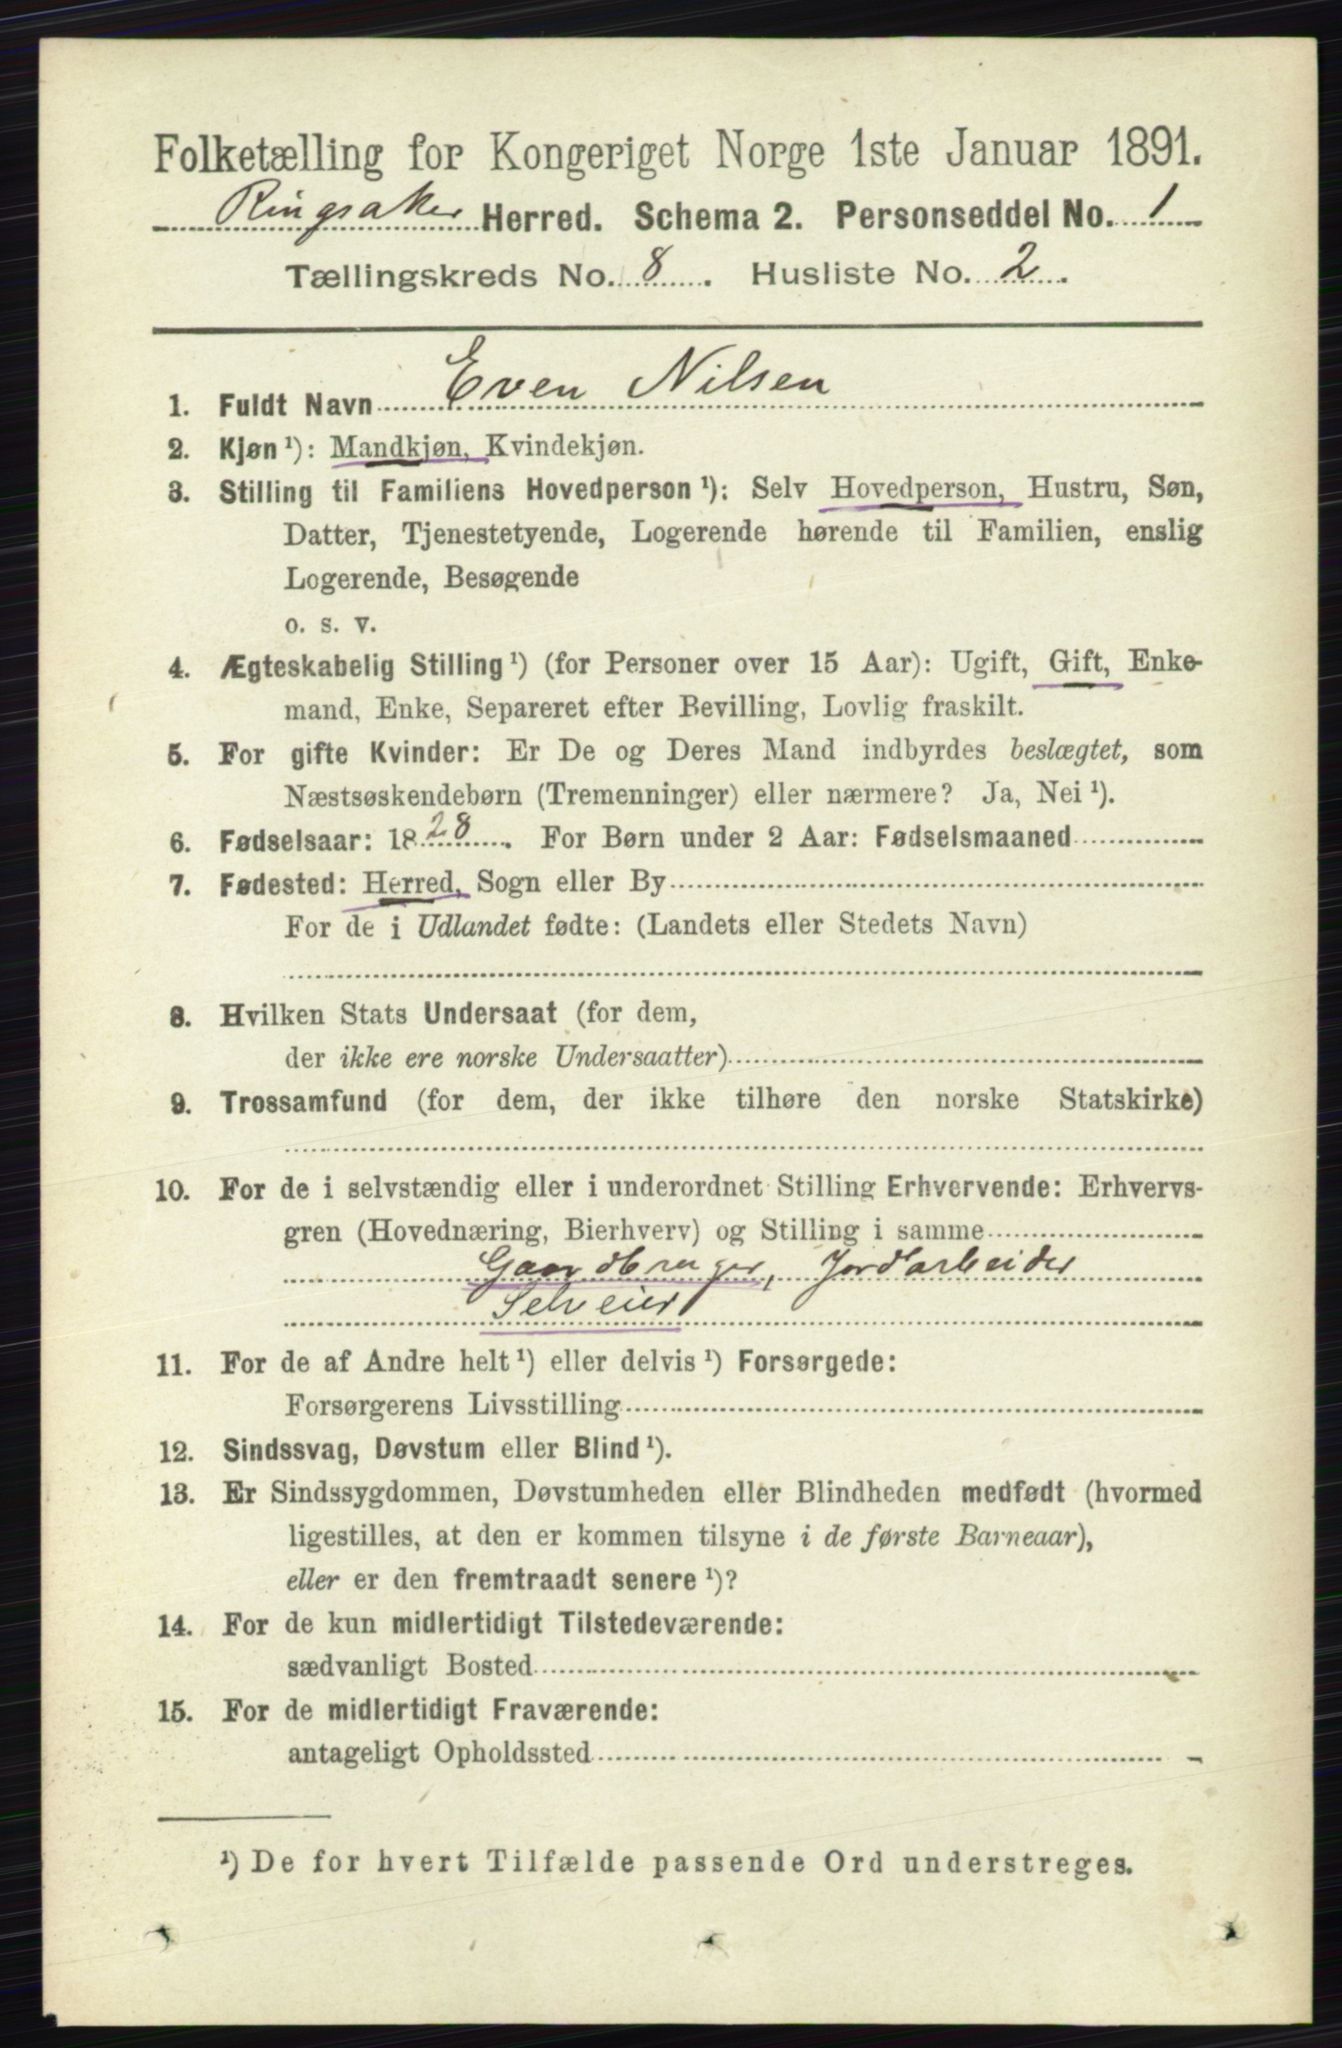 Folketælling for Kongeriget Norge 1ste Januar 1891.
Ringsaker Herred. Schema 2. Personseddel No. 1
Tællingskreds No. 8. Husliste No. 2.
1. Fuldt Navn Even Nilsen
2. Kjøn¹): Mandkjøn, Kvindekjøn.
3. Stilling til Familiens Hovedperson¹): Selv Hovedperson, Hustru, Søn,
Datter, Tjenestetyende, Logerende hørende til Familien, enslig
Logerende, Besøgende
o. s. v.
4. Ægteskabelig Stilling¹) (for Personer over 15 Aar): Ugift, Gift, Enke-
mand, Enke, Separeret efter Bevilling, Lovlig fraskilt.
5. For gifte Kvinder: Er De og Deres Mand indbyrdes beslægtet, som
Næstsøskendebørn (Tremenninger) eller nærmere? Ja, Nei¹).
6. Fødselsaar: 1828. For Børn under 2 Aar: Fødselsmaaned
7. Fødested: Herred, Sogn eller By
For de i Udlandet fødte: (Landets eller Stedets Navn)
8. Hvilken Stats Undersaat (for dem,
der ikke ere norske Undersaatter)
9. Trossamfund (for dem, der ikke tilhøre den norske Statskirke)
10. For de i selvstændig eller i underordnet Stilling Erhvervende: Erhvervs-
gren (Hovednæring, Bierhverv) og Stilling i samme
Gaardbruger, Jordarbeider
Selveier
11. For de af Andre helt¹) eller delvis¹) Forsørgede:
Forsørgerens Livsstilling
12. Sindssvag, Døvstum eller Blind¹).
13. Er Sindssygdommen, Døvstumheden eller Blindheden medfødt (hvormed
ligestilles, at den er kommen tilsyne i de første Barneaar),
eller er den fremtraadt senere¹)?
14. For de kun midlertidigt Tilstedeværende:
sædvanligt Bosted
15. For de midlertidigt Fraværende:
antageligt Opholdssted
¹) De for hvert Tilfælde passende Ord understreges.